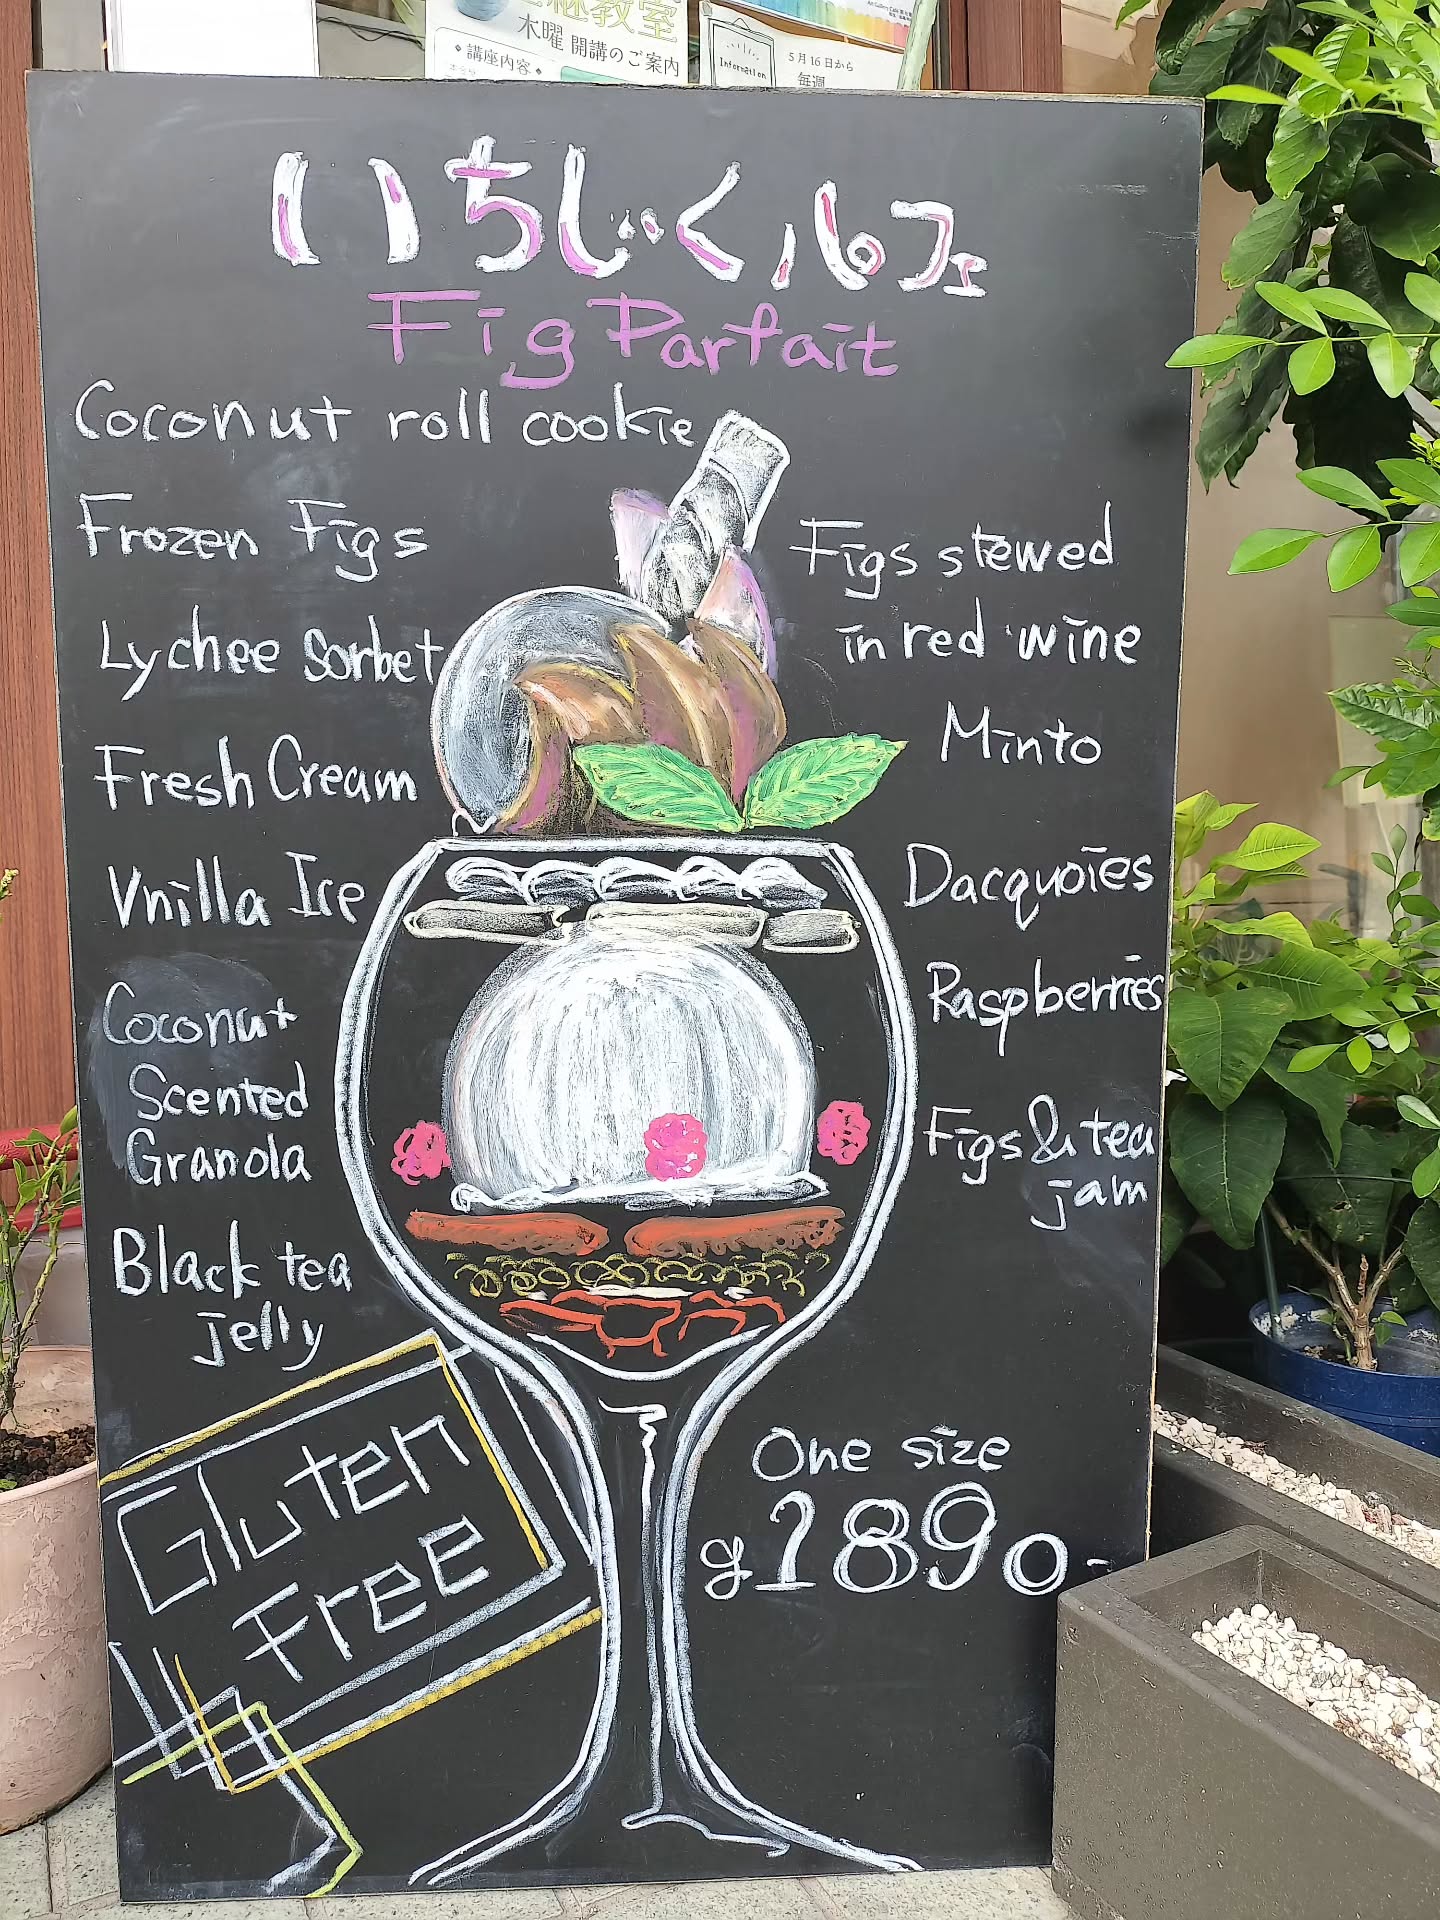 木曜 開講のご案内
◆講座内容◆
Information
5月16日から
毎週
いちじくパルフェ
Fig Parfait
Coconut roll cookie
Frozen Figs
Figs stewed
in red wine
Lychee Sorbet
Minto
Fresh Cream
Vnilla Ice
Dacquoies
Raspberries
Coconut
Scented
Granola
Figs & tea
jam
Black tea
jelly
Gluten
Free
One size
¥1890-